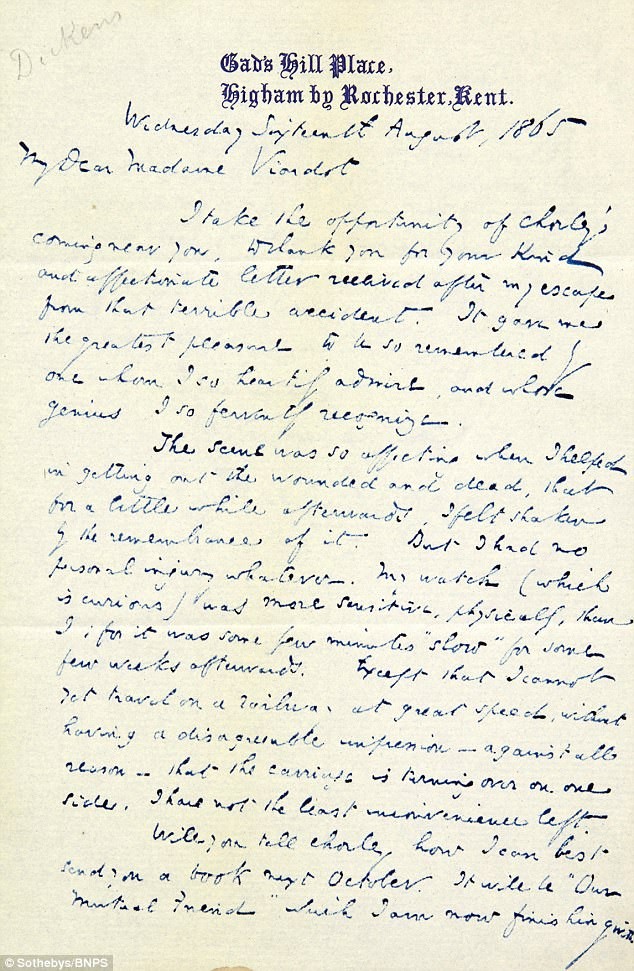 Dickens
Gad's Hill Place,
Higham by Rochester, Kent.
Wednesday Sixteenth August, 1865
My Dear Madame Viardot
I take the opportunity of Chorley's
coming near you, to thank you for your kind
and affectionate letter received after my escape
from that terrible accident. It gave me
the greatest pleasure to be so remembered by
one whom I so heartily admire, and whose
genius I so fervently recognize.
The scene was so affecting when I helped
in getting out the wounded and dead, that
for a little while afterwards, I felt shaken
by the remembrance of it. But I had no
personal injury whatever. My watch (which
is curious) was more sensitive, physically, than
I; for it was some few minutes "slow" for some
few weeks afterwards. Except that I cannot
yet travel on a railway at great speed, without
having a disagreeable impression – against all
reason – that the carriage is turning over on one
side, I have not the least inconvenience left.
Will you tell Chorley how I can best
send you a book next October. It will be "Our
Mutual Friend" which I am now finishing with
© Sothebys/BNPS